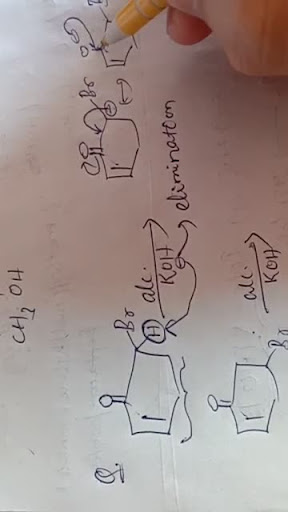 CH2 OH
O
Br
O
Br
Q.
O
Br
H
alc.
KOH
elimination
O
Br
alc.
KOH